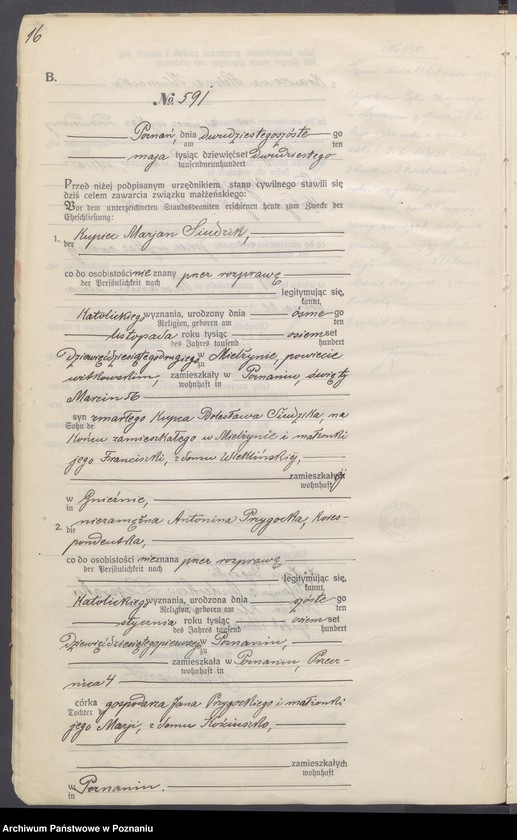 16
B.
No 591
Poznań, dnia dwudziestegoszóste go
am ten
maja tysiąc dziewięćset dwudziestego
tausendneunhundert
Przed niżej podpisanym urzędnikiem stanu cywilnego stawili się
dziś celem zawarcia związku małżeńskiego:
Vor dem unterzeichneten Standesbeamten erschienen heute zum Zwecke der
Eheschließung:
1. Kupiec Marjan Siudzik,
der
co do osobistości nie znany przez rozprawę
der Persönlichkeit nach
legitymując się,
kannt,
Katolickiego wyznania, urodzony dnia ósme go
Religion, geboren am ten
listopada roku tysiąc osiemset
des Jahres tausend hundert
Dziewięćdziesiątegodrugiego w Mielżynie, powiecie
zu
witkowskim, zamieszkały w Poznaniu, święty
wohnhaft in
Marcin 56
syn zmarłego kupca Bolesława Siudzika, na
Sohn de
końcu zamieszkałego w Mielżynie i małżonki
jego Franciszki, z domu
zamieszkałych
wohnhaft
w Gnieźnie,
in
2. niezamężna Antonina Przygocka, kores-
die
pondentka,
co do osobistości nieznana przez rozprawę
der Persönlichkeit nach
legitymując się,
kannt,
Katolickiego wyznania, urodzona dnia szóste go
Religion, geboren am ten
stycznia roku tysiąc osiemset
des Jahres tausend hundert
Dziewięćdziesiątegopierwszego w Poznaniu,
zu
zamieszkała w Poznaniu, Przecz-
wohnhaft in
nica 4
córka gospodarza Jana Przygockiego i małżonki
Tochter de
jego Marji, z domu Kościuszko,
zamieszkałych
wohnhaft
w Poznaniu.
in
Archiwum Państwowe w Poznaniu